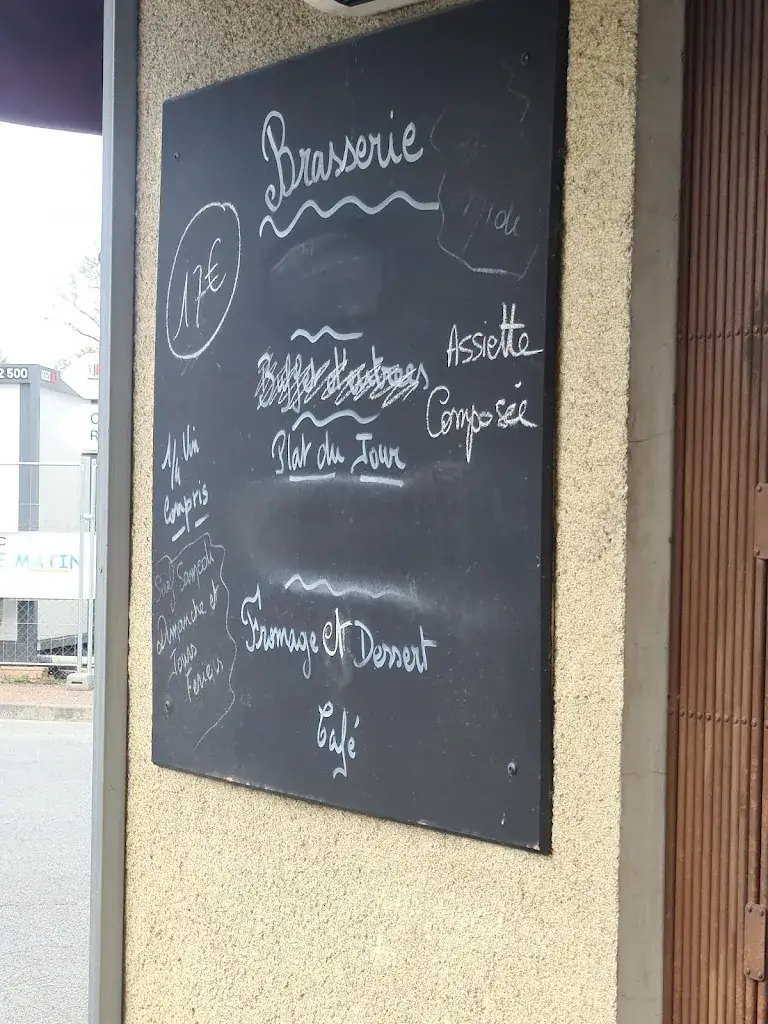 Brasserie
17€
Assiette
Composée
Buffet d'entrées
Plat du Jour
1/4 Vin
Compris
Sauf Samedi
Dimanche et
Jours
Feriers
Fromage et Dessert
Café
2 500
E MATIN